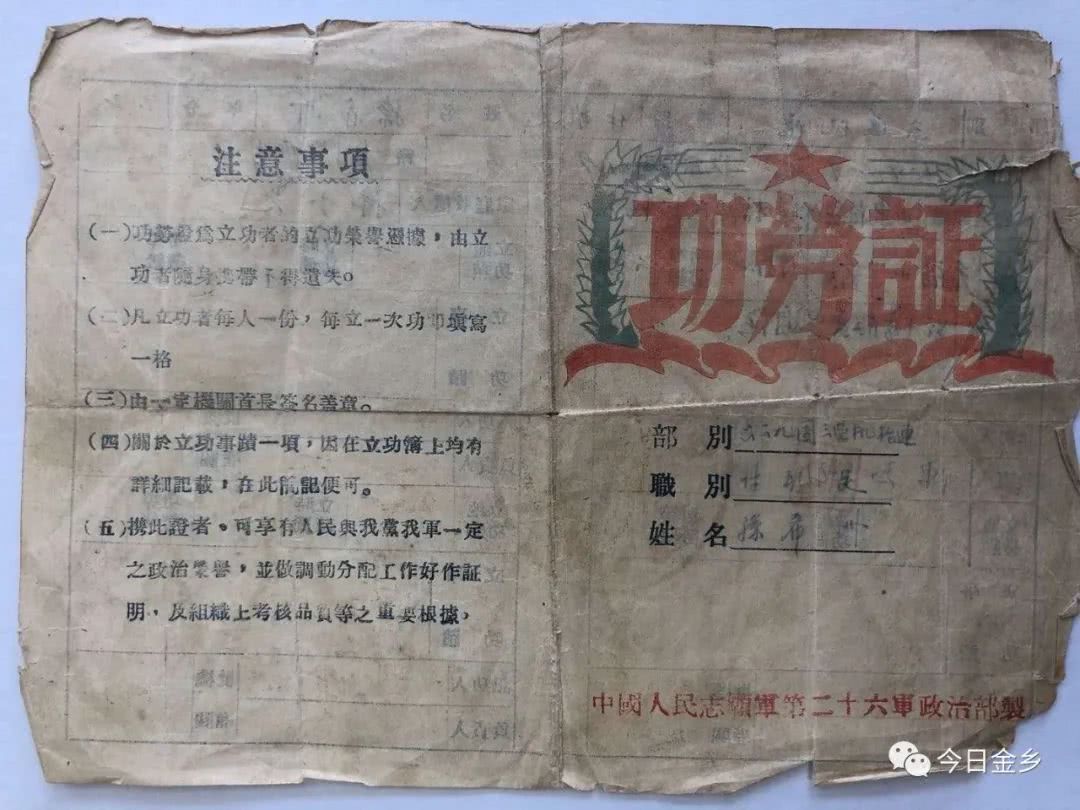 注意事項
(一)功勞證爲立功者的立功榮譽憑據，由立
功者隨身携帶不得遺失。
(二)凡立功者每人一份，每立一次功即填寫
一格
(三)由一定機關首長簽名蓋章。
(四)關於立功事蹟一項，因在立功簿上均有
詳細記載，在此簡記便可。
(五)携此證者。可享有人民與我黨我軍一定
之政治榮譽，並做調動分配工作好作証
明，及組織上考核品質等之重要根據，
功勞証
部別
職別
姓名 孫希
中國人民志願軍第二十六軍政治部製
今日金乡